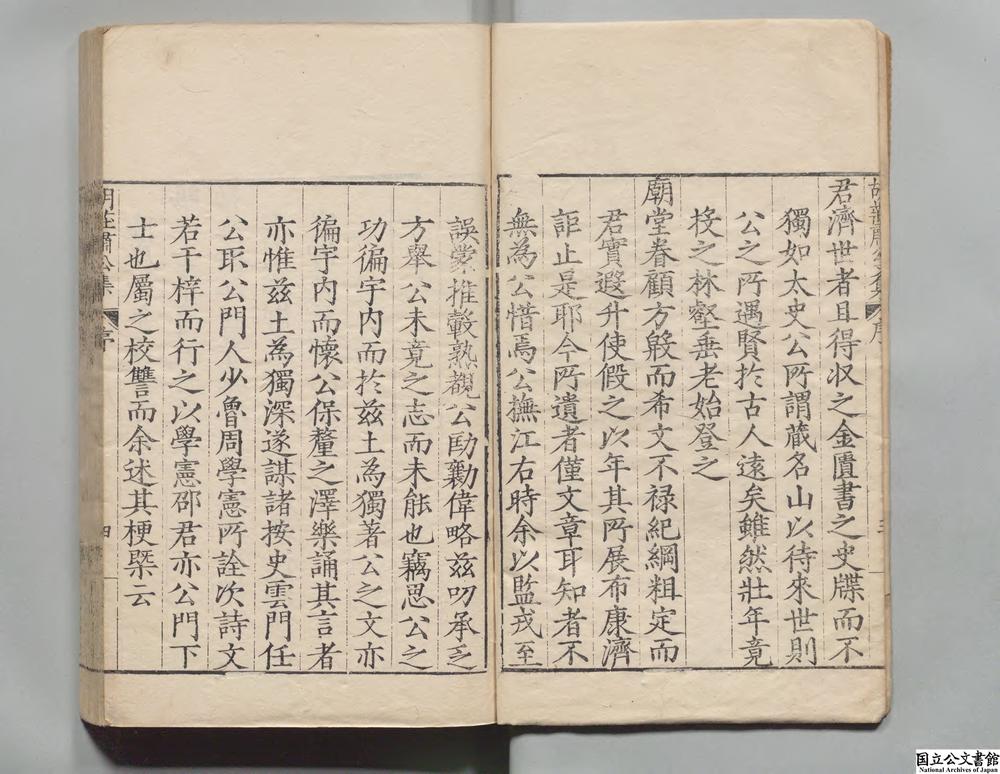 君濟世者且得収之金匱書之史牒而不
獨如太史公所謂蔵名山以待來世則
公之所遇賢於古人遠矣雖然壯年竟
投之林壑垂老始登之
廟堂眷顧方殷而希文不禄紀綱粗定而
君實遐升使假之以年其所展布康濟
詎止是耶今所遺者僅文章耳知者不
無為公惜焉公撫江右時余以監戎至
誤蒙推轂熟覩公勛勤偉略兹叨承乏
方舉公未竟之志而未能也竊思公之
功徧宇内而於兹土為獨著公之文亦
徧宇内而懷公保釐之澤樂誦其言者
亦惟兹土為獨深遂謀諸按史雲門任
公取公門人少魯周學憲所詮次詩文
若干梓而行之以學憲邵君亦公門下
士也屬之校讐而余述其梗槩云
胡莊肅公集
序
四
国立公文書館
National Archives of Japan